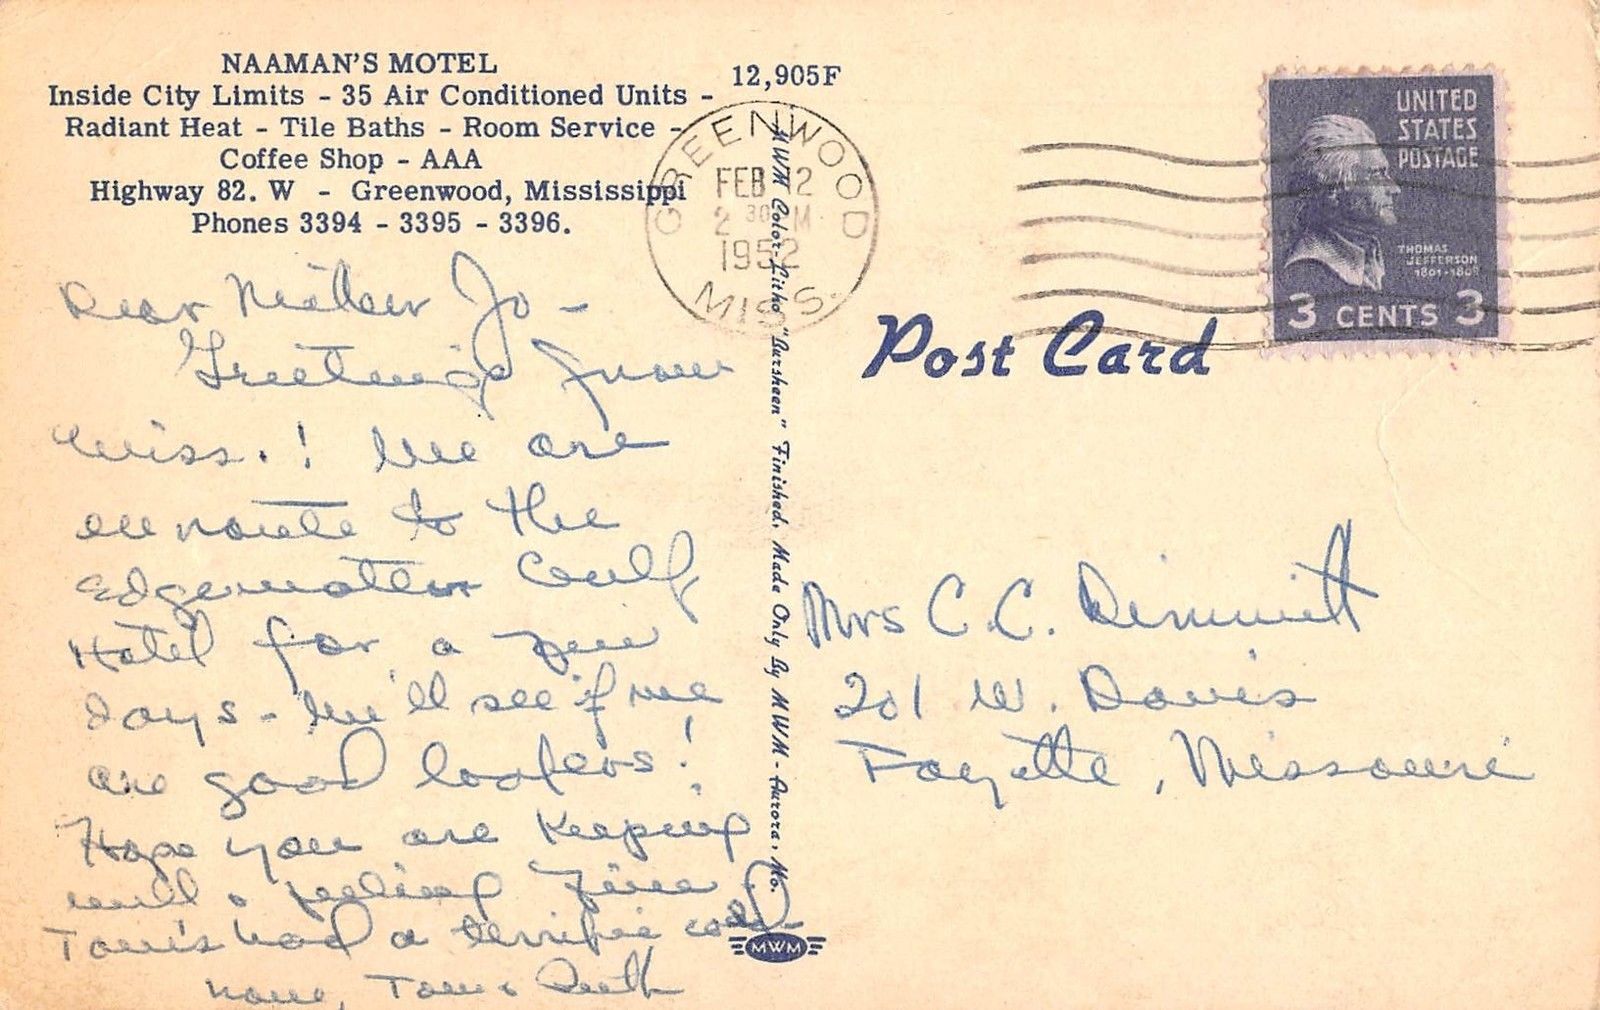 NAAMAN'S MOTEL
Inside City Limits - 35 Air Conditioned Units -
Radiant Heat - Tile Baths - Room Service -
Coffee Shop - AAA
Highway 82. W - Greenwood, Mississippi
Phones 3394 - 3395 - 3396.
12,905F
GREENWOOD
FEB 12
2 30 PM
1952
MISS.
UNITED
STATES
POSTAGE
THOMAS
JEFFERSON
1801-1809
3 CENTS 3
Post Card
MWM Color-Litho "Dursheen" Finished, Made Only By MWM - Aurora, Mo.
Dear Mother Jo -
Greetings from
Miss.! We are
en route to the
Edgewater Gulf
Hotel for a few
days - We'll see if we
are good loafers!
Hope you are keeping
well & feeling fine
Tom's had a terrific cold
Tom & Ruth
Mrs C. C. Dimmitt
201 W. Davis
Fayette, Missouri
MWM